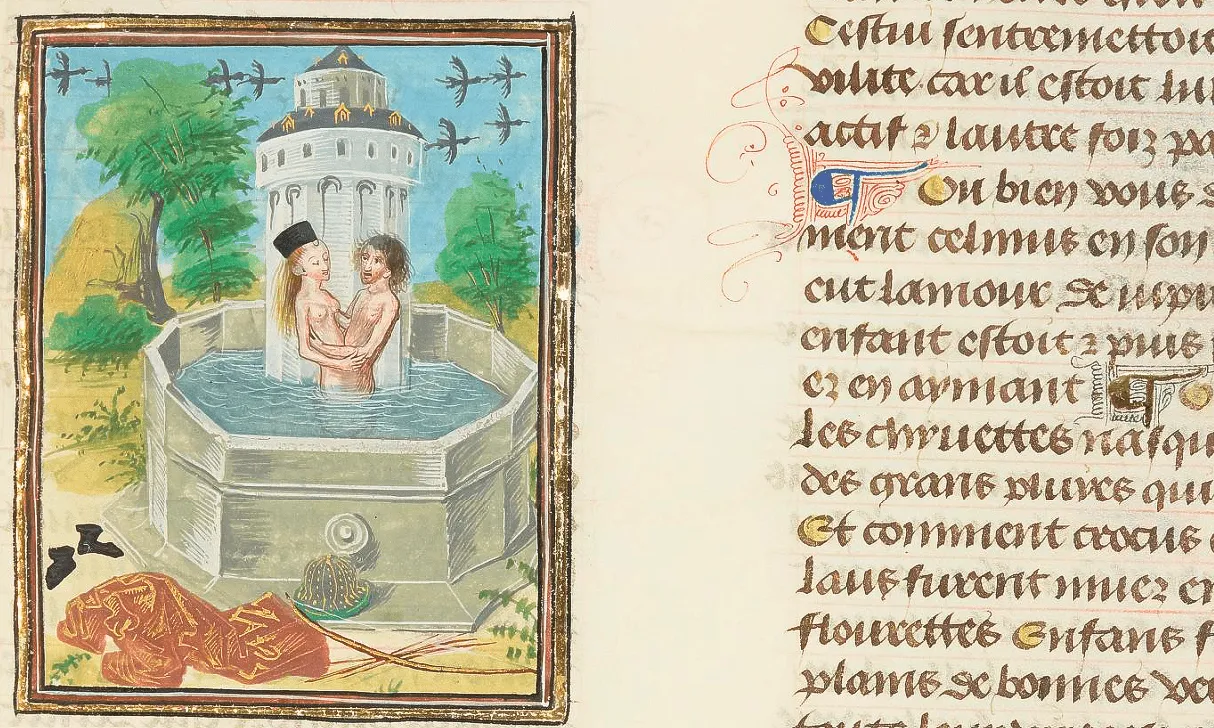 Cestui sentremettoit
vilite car il estoit lu
actif ⁊ lautre foiz pa
Tou bien vous d
ment celmus en son
eut lamour de iupi
enfant estoit ⁊ puis
ez en aymant T
les chruettes nasqu
des grans pluues qui
Et comment crocus
laus furent muez en
flourettes Enfans f
plains de bonnes ver